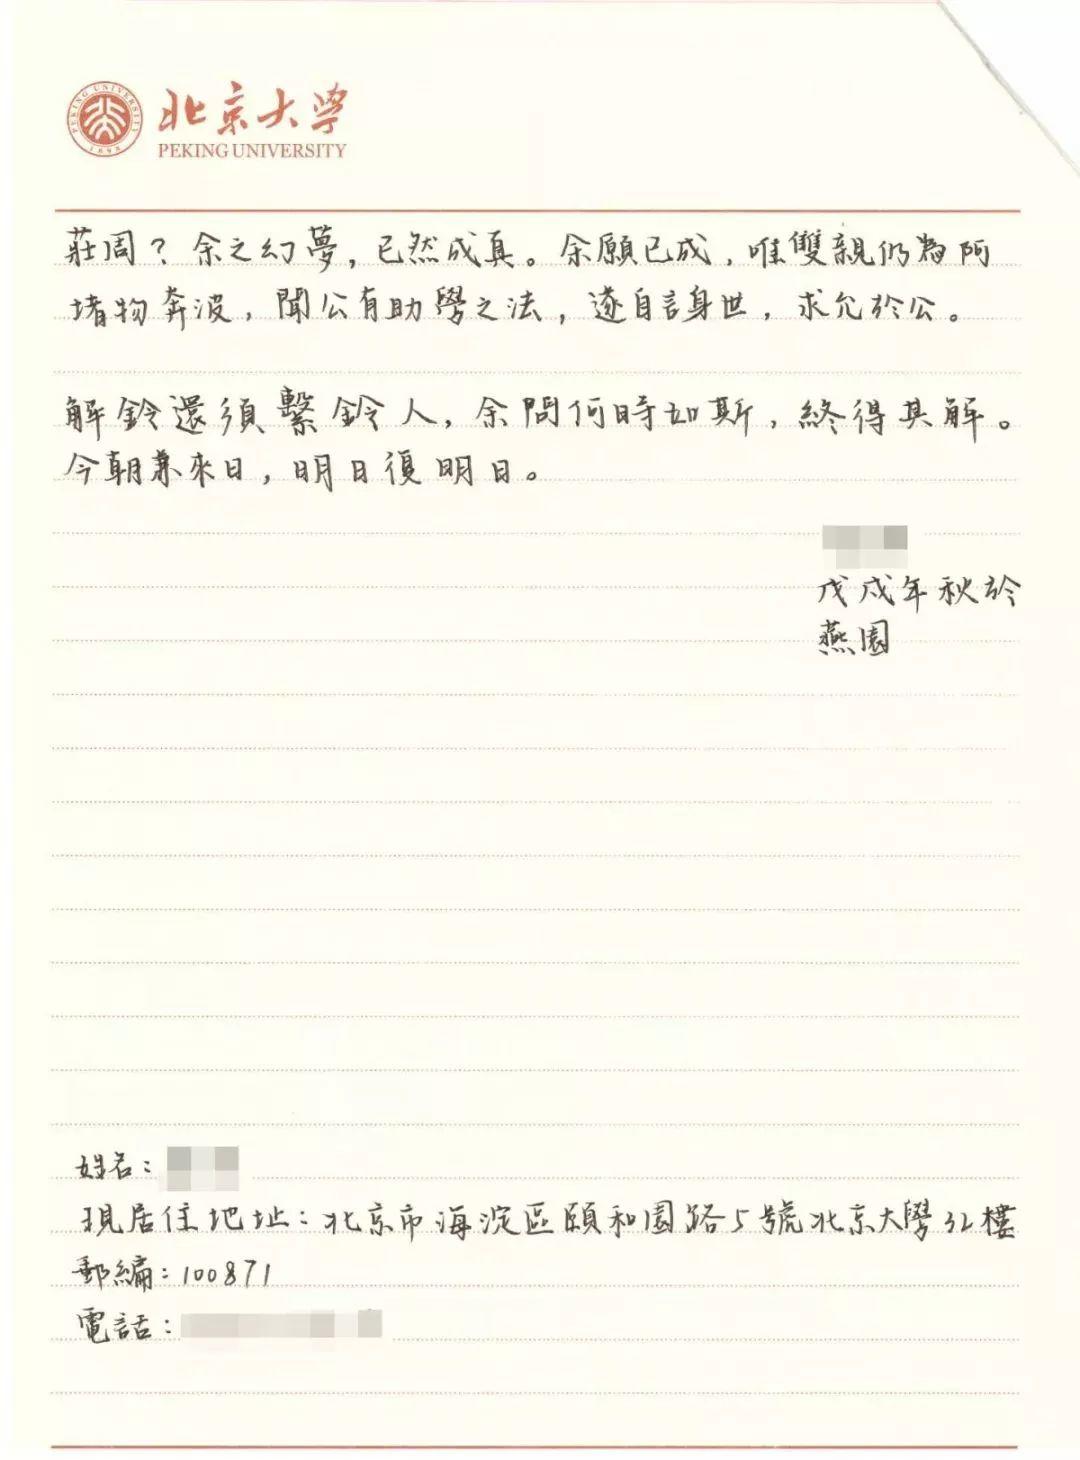 北京大学
PEKING UNIVERSITY
莊周？余之幻夢，已然成真。余願已成，唯雙親仍為阿
堵物奔波，聞公有助學之法，遂自言身世，求允於公。
解鈴還須繫鈴人，余問何時如斯，終得其解。
今朝兼來日，明日復明日。
戊戌年秋於
燕園
姓名：
現居住地址：北京市海淀區頤和園路5號北京大學32樓
郵編：100871
電話：